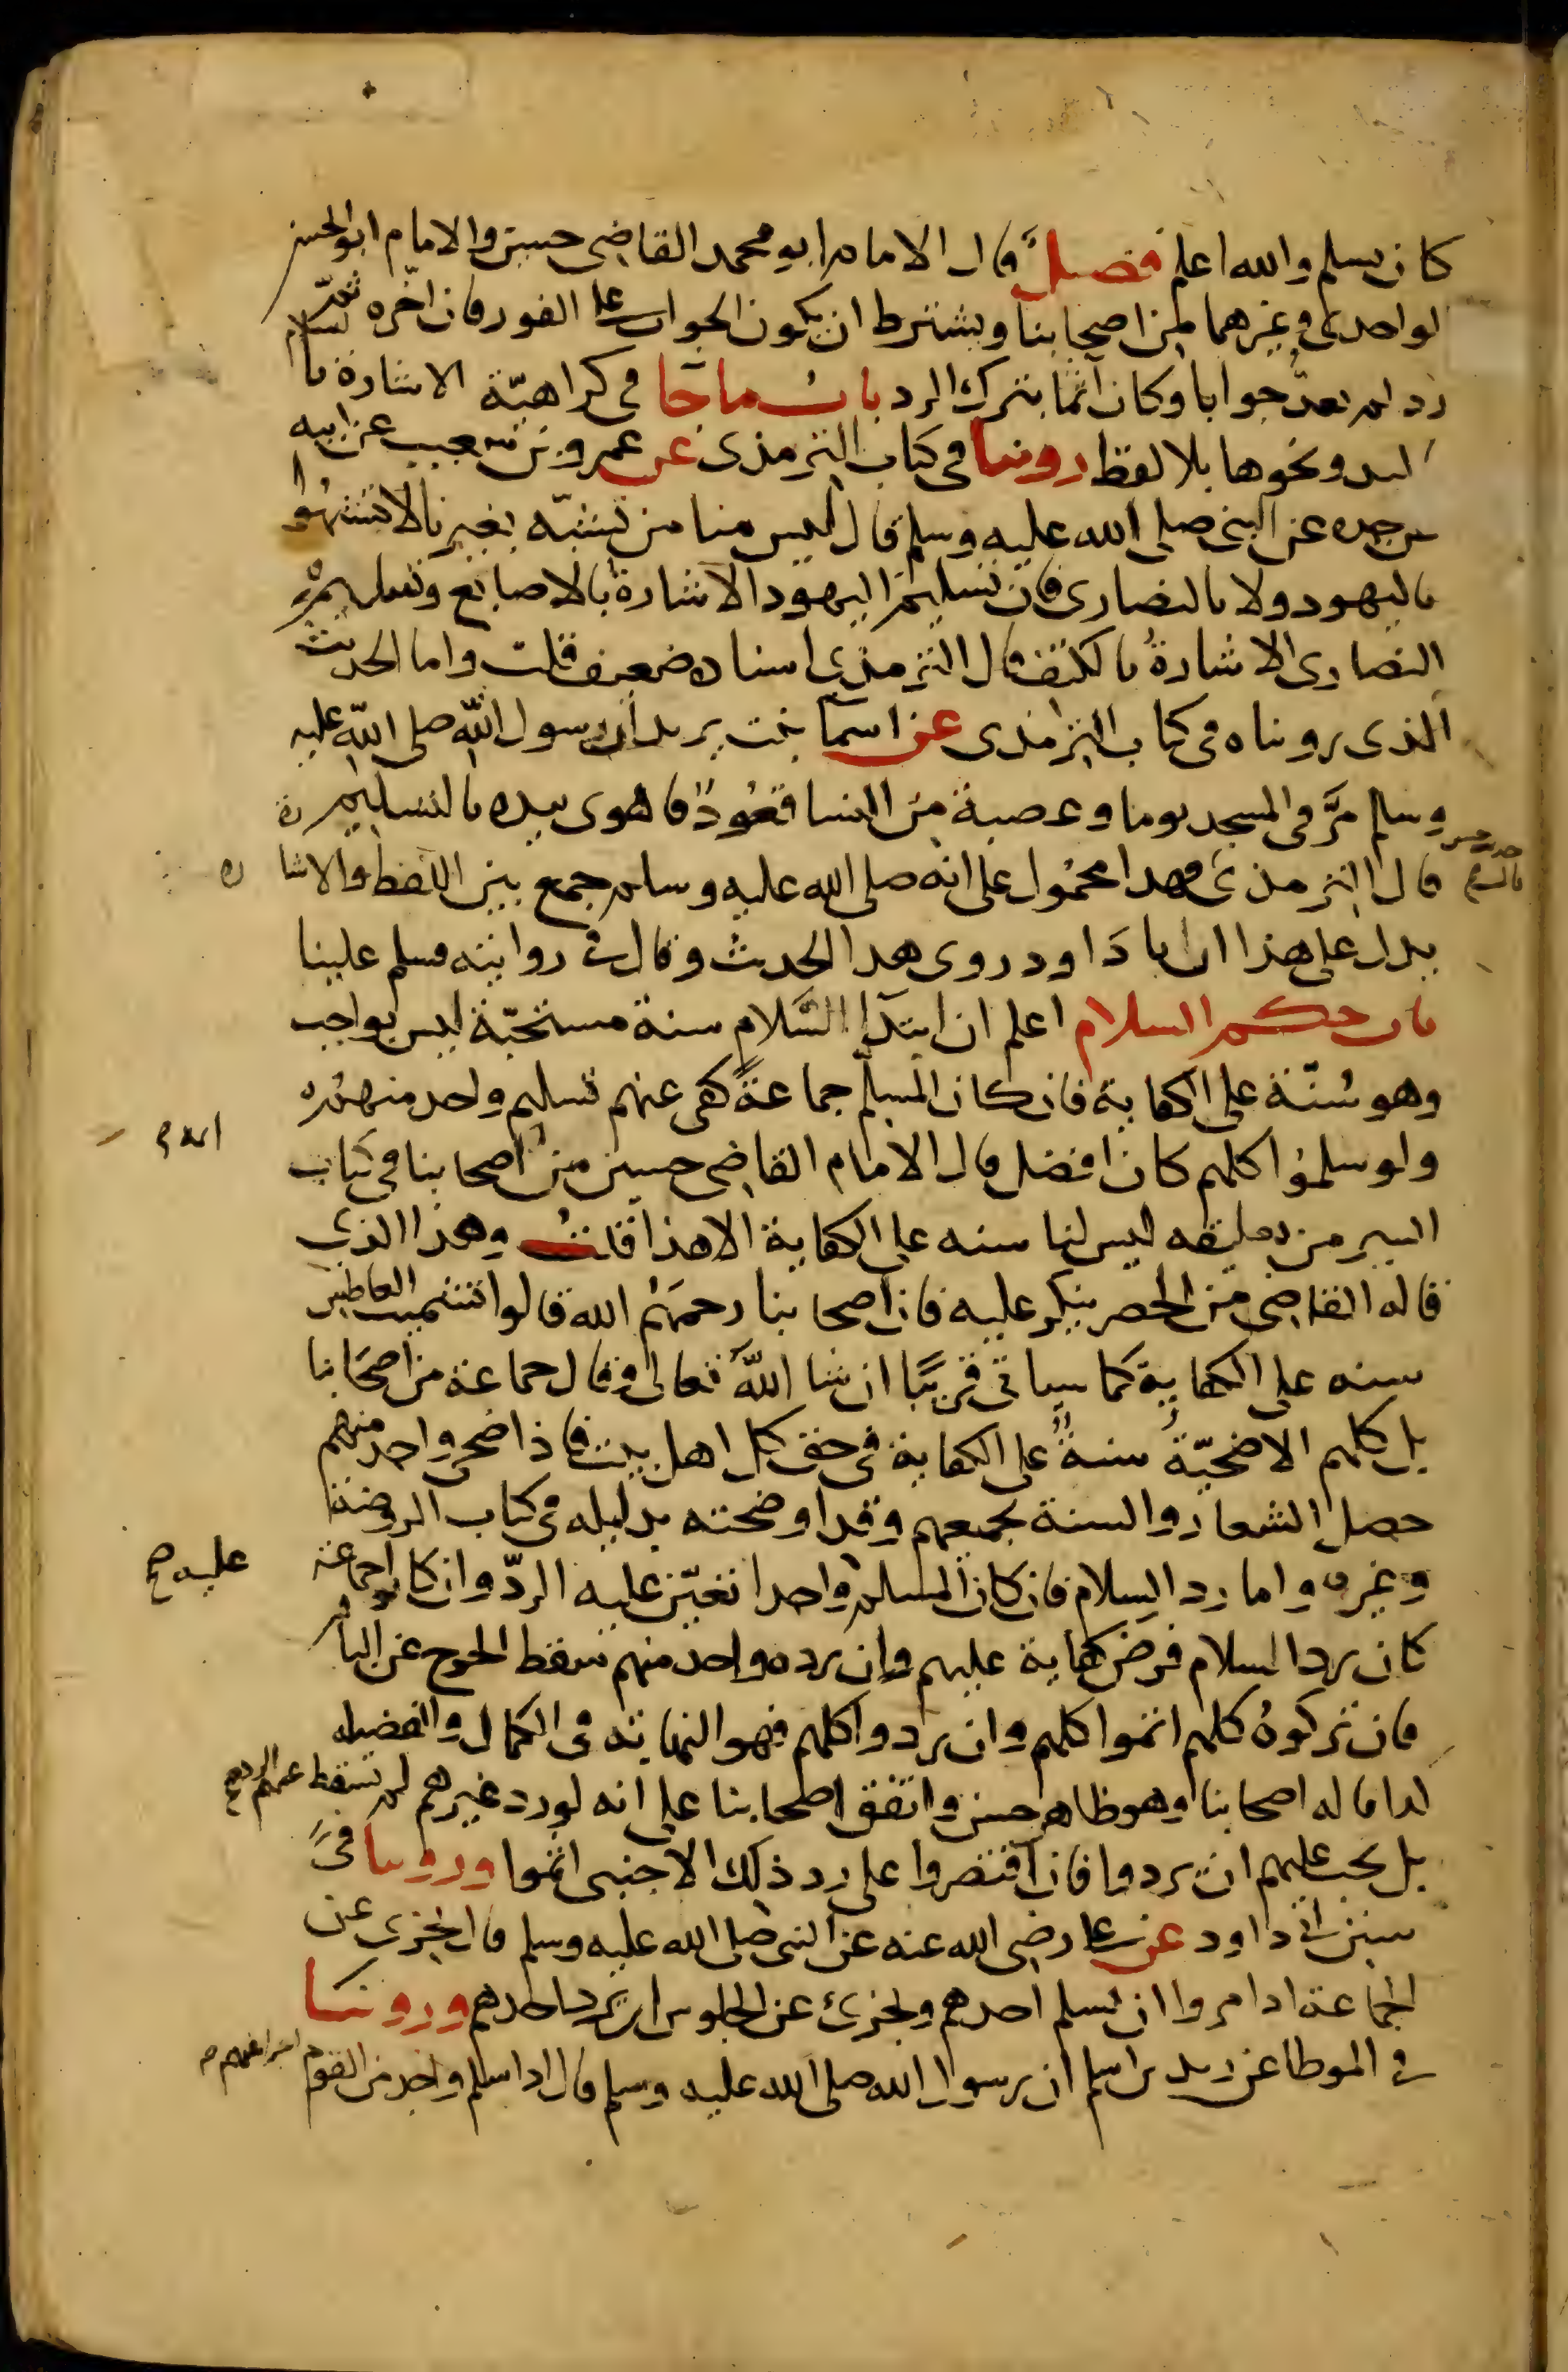 كان يسلم والله اعلم فصل قال الامام ابو محمد القاضي حسين والامام ابو الحسن
الواحدي وغيرهما من اصحابنا ويشترط ان يكون الجواب على الفور فان اخره ثم
رد لم يعد جوابا وكان آثما بترك الرد باب ما جا في كراهية الاشارة بالسلام
باليد ونحوها بلا لفظ روينا في كتاب الترمذى عن عمرو بن شعيب عن ابيه
عن جده عن النبي صلى الله عليه وسلم قال ليس منا من تشبه بغيرنا لا تشبهوا
باليهود ولا بالنصارى فان تسليم اليهود الاشارة بالاصابع وتسليم
النصارى الاشارة بالكف قال الترمذي اسناده ضعيف قلت واما الحديث
الذى رويناه في كتاب الترمذى عن اسما بنت يزيد ان رسول الله صلى الله عليه
وسلم مرّ في المسجد يوما وعصبة من النسا قعود فاهوى بيده بالتسليم
قال الترمذي حديث حسن فهذا محمول على انه صلى الله عليه وسلم جمع بين اللفظ والاشارة
يدل على هذا ان ابا داود روى هذا الحديث وقال في روايته فسلم علينا
باب حكم السلام اعلم ان ابتدآ السلام سنة مستحبة ليس بواجب
وهو سنة على الكفاية فان كان المسلم جماعة كفى عنهم تسليم واحد منهم
ولو سلموا كلهم كان افضل قال الامام القاضي حسين من اصحابنا في كتاب
السير من تعليقه ليس لنا سنه على الكفاية الا هذا قلت وهذا الذي
قاله القاضي من الحصر ينكر عليه فان اصحابنا رحمهم الله قالوا تشميت العاطس
سنه على الكفاية كما سياتي قريبا ان شا الله تعالى وقال جماعة من اصحابنا
بل كلهم الاضحية سنة على الكفاية في حق كل اهل بيت فاذا ضحى واحد منهم
حصل الشعار والسنة لجميعهم وقد اوضحته بدليله في كتاب الروضة
وغيره واما رد السلام فان كان المسلم واحدا تعين عليه الرد وان كانوا جماعة
عليه صح
كان رد السلام فرض كفاية عليهم وان رده واحد منهم سقط الحرج عن الباقي
فان تركوه كلهم اثموا كلهم وان ردوا كلهم فهو النهاية في الكمال والفضيله
كذا قاله اصحابنا وهو ظاهر حسن واتفق اصحابنا على انه لو رد غيرهم لم يسقط عنهم الرد
بل يجب عليهم ان يردوا فان اقتصروا على رد ذلك الاجنبى اثموا وروينا في
سنن ابي داود عن على رضي الله عنه عن النبى صلى الله عليه وسلم قال يجزى عن
الجماعة اذا مروا ان يسلم احدهم ويجزئ عن الجلوس ان يرد احدهم وروينا
في الموطا عن زيد بن اسلم ان رسول الله صلى الله عليه وسلم قال اذا سلم واحد من القوم اجزا عنهم